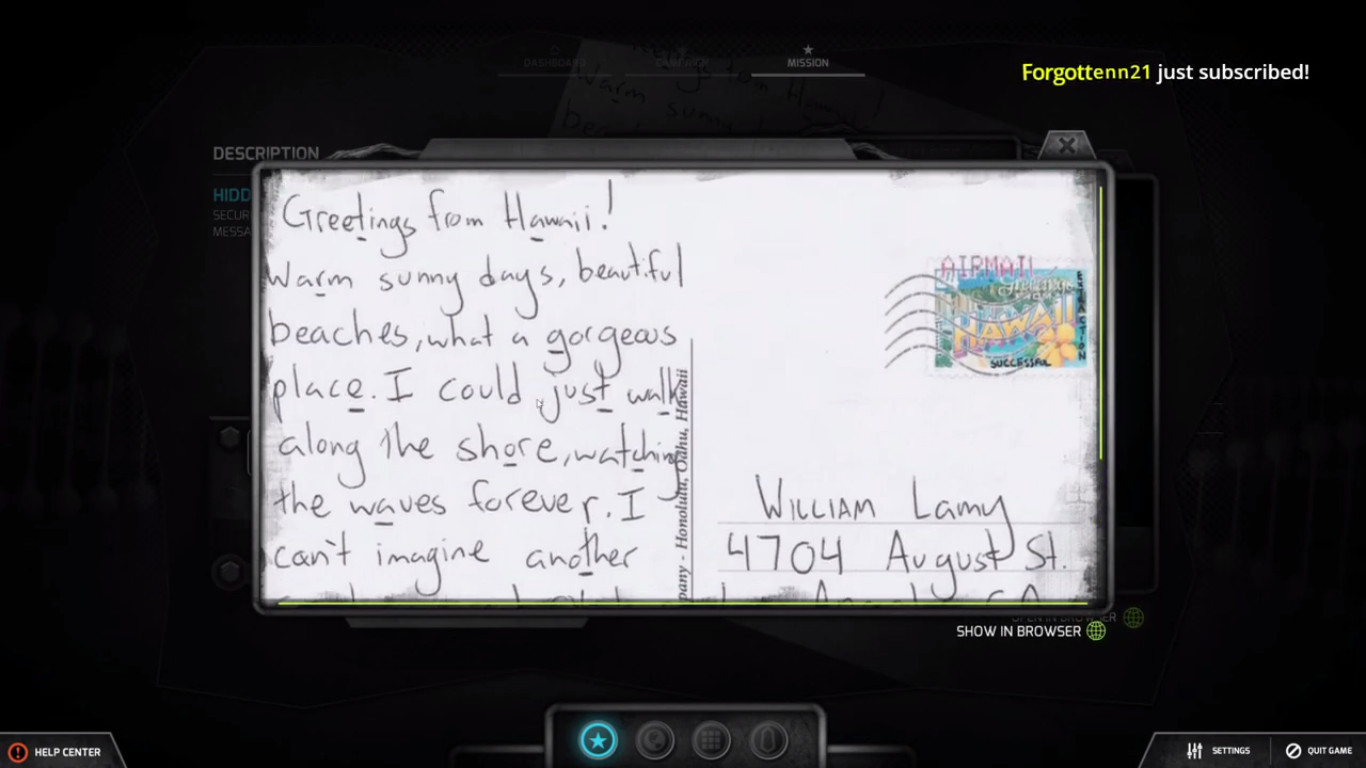 DASHBOARD
MISSION
Forgottenn21 just subscribed!
DESCRIPTION
HIDD
SECUR
MESSA
Greetings from Hawaii!
Warm sunny days, beautiful
beaches, what a gorgeous
place. I could just walk
along the shore, watching
the waves forever. I
can't imagine another
pany - Honolulu, Oahu, Hawaii
AIRMAIL
Greetings
FROM
HAWAII
EXTRACTION
SUCCESSFUL
William Lamy
4704 August St.
OPEN IN BROWSER
SHOW IN BROWSER
HELP CENTER
SETTINGS
QUIT GAME